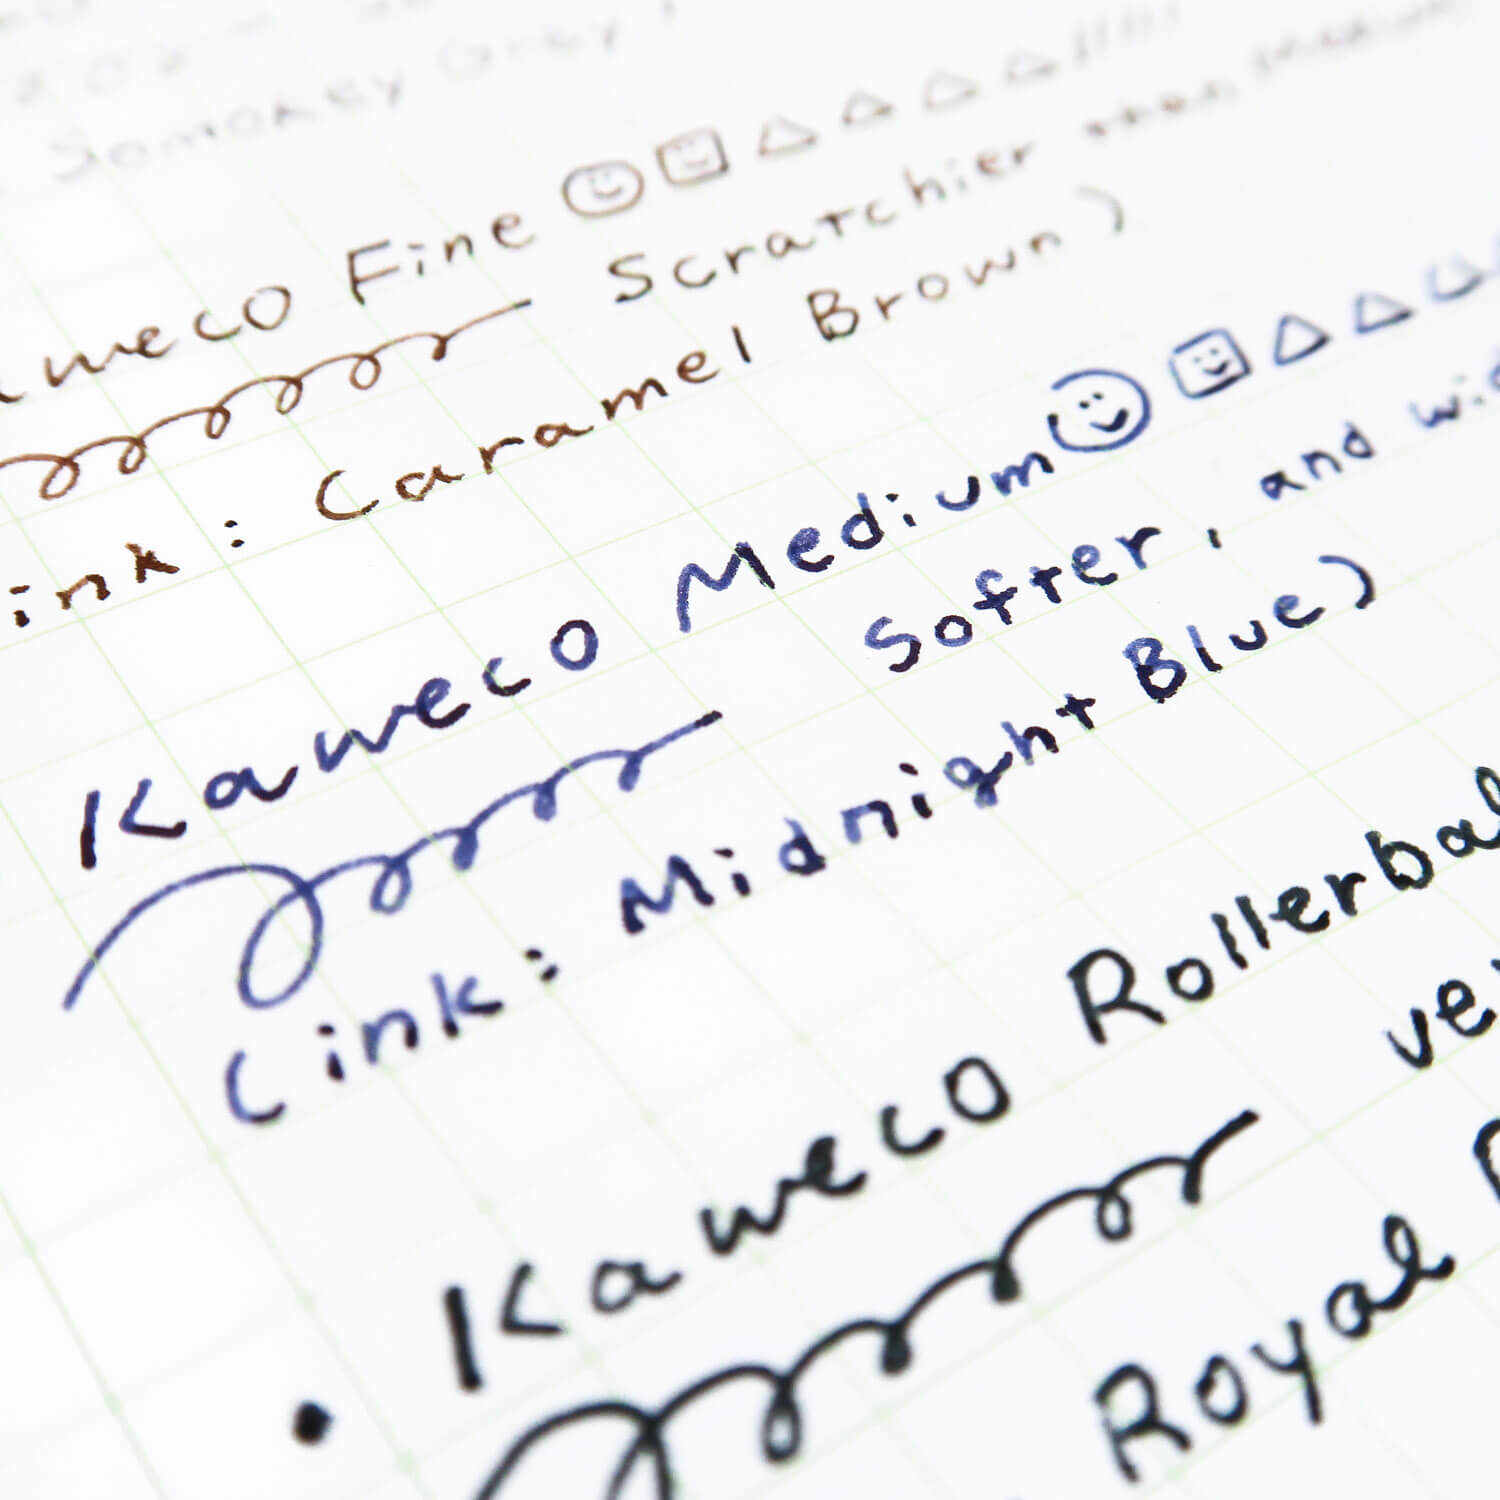 Somokey Grey
aweco Fine
Scratchier than Medium
ink: Caramel Brown)
Kaweco Medium
Softer, and wid
(ink: Midnight Blue)
Kaweco Rollerbal
ver
Royal